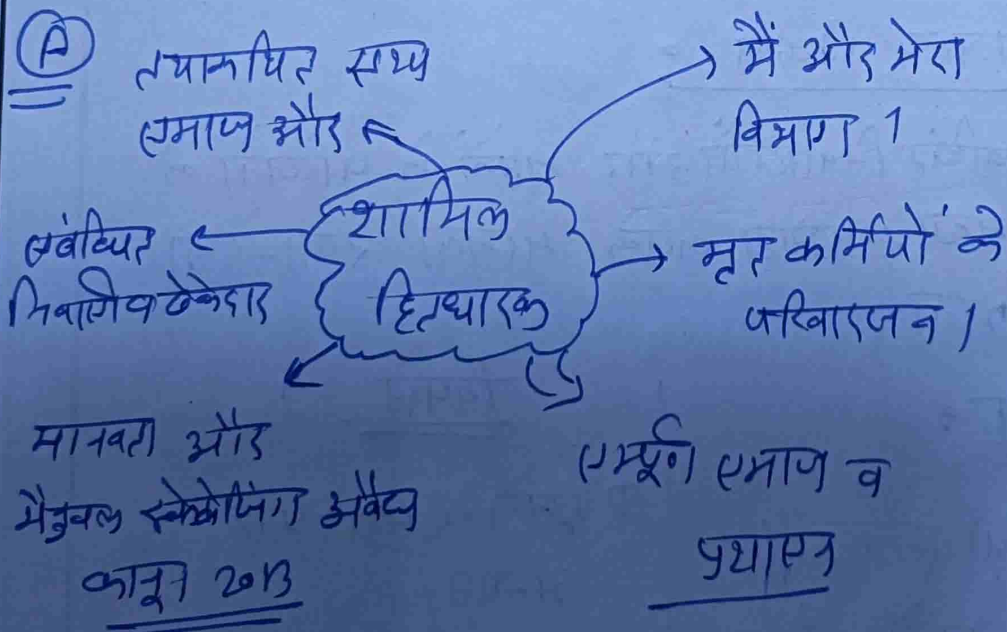 A
तथाकथित सभ्य
समाज और
मैं और मेरा
विभाग ।
शामिल
हितधारक
संबंधित
निजी ठेकेदार
मृत कर्मियों के
परिवारजन ।
मानवता और
मैनुवल स्केवेंजिंग अवैध
कानून 2013
सम्पूर्ण समाज व
प्रशासन